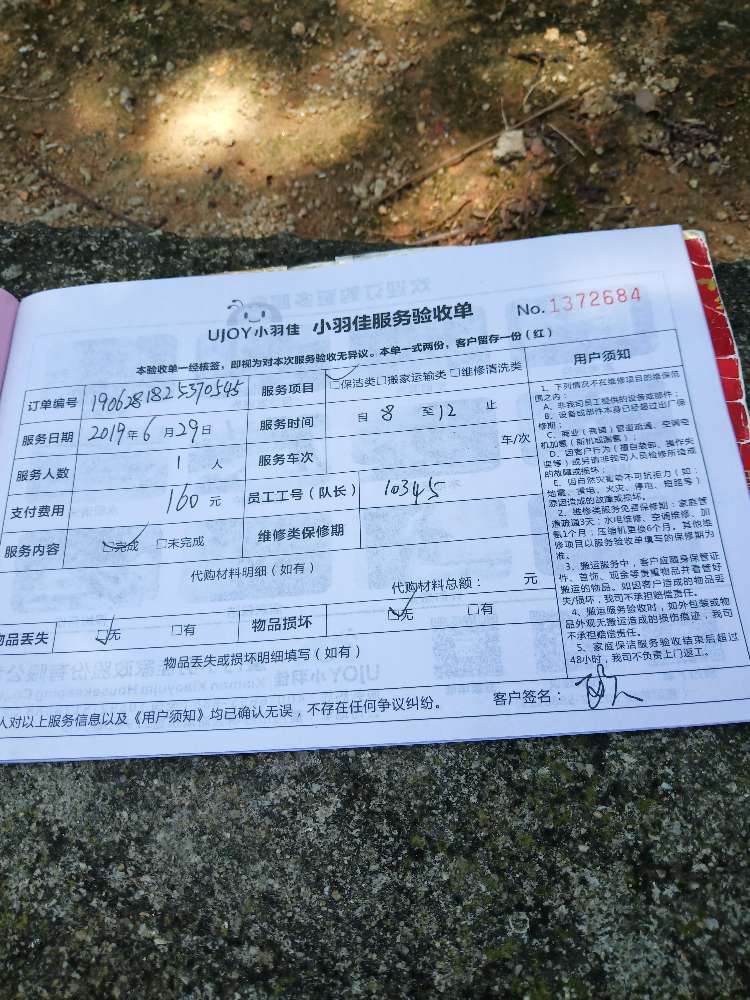 UJOY小羽佳 小羽佳服务验收单 No.1372684
本验收单一经核签，即视为对本次服务验收无异议。本单一式两份，客户留存一份（红）
订单编号 190628182537054​5 服务项目 □保洁类□搬家运输类 □维修清洗类
服务日期 2019年6月29日 服务时间 自 8 至 12 止
服务人数 1 人 服务车次 车/次
支付费用 160 元 员工工号（队长） 10345
服务内容 □完成 □未完成 维修类保修期
代购材料明细（如有）
代购材料总额： 元
物品丢失 □无 □有 物品损坏 □无 □有
物品丢失或损坏明细填写（如有）
人对以上服务信息以及《用户须知》均已确认无误，不存在任何争议纠纷。 客户签名：
用户须知
1、下列情况不在维修项目的维保范
围之内：
A、非我司员工提供的设备或部件；
B、设备或部件本身已经超过出厂保
修期；
C、商业（商铺）管道疏通、空调空
机加氨（新机或漏氨）；
D、因客户行为（擅自装卸、操作失
误等）或另请非我司人员检修所造成
的故障或损坏；
E、因自然灾害等不可抗拒力（如：
地震、雷电、火灾、停电、短路等）
原因造成的故障或损坏。
2、维修类服务免费保修期：家庭管
道疏通3天；水电维修、空调维修、加
氨1个月；压缩机更换6个月。其他维
修项目以服务验收单填写的保修期为
准。
3、搬运服务中，客户应随身保管证
件、首饰、现金等贵重物品并看管好
搬运的物品。如因客户造成的物品丢
失/损坏，我司不承担赔偿责任。
4、搬运服务验收时，如外包装或物
品外观无搬运造成的损伤痕迹，我司
不承担赔偿责任。
5、家庭保洁服务验收结束后超过
48小时，我司不负责上门返工。